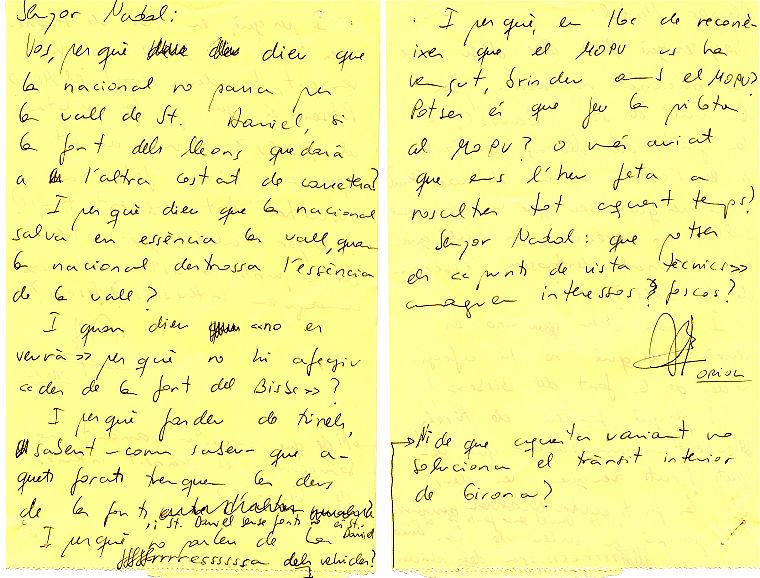 Senyor Nadal:
Vos, per què dieu que
la nacional no passa per
la vall de St. Daniel, si
la font dels lleons quedarà
a l'altra costat de carretera?
I per què dieu que la nacional
salva en essència la vall, quan
la nacional destrossa l'essència
de la vall?
I quan dieu <<no es
veurà>> per què no hi afegiu
<<des de la font del Bisbe>>?
I per què parleu de túnels,
sabent -com sabeu- que a-
quets forats trenquen les deus
de les fonts
, i St. Daniel sense fonts no és St. Daniel?
I per què no parleu de la
fressssssa dels vehicles?
I per què, en lloc de reconè-
ixer que el MOPU us ha
vençut, brindeu amb el MOPU?
Potser és que feu la piloteta
al MOPU? O més aviat
que ens l'heu feta a
nosaltres tot aquest temps?
Senyor Nadal: que potser
els <<punts de vista tècnics>>
amaguen interessos foscos?
ORIOL
Ni de que aquesta variant no
soluciona el trànsit interior
de Girona?